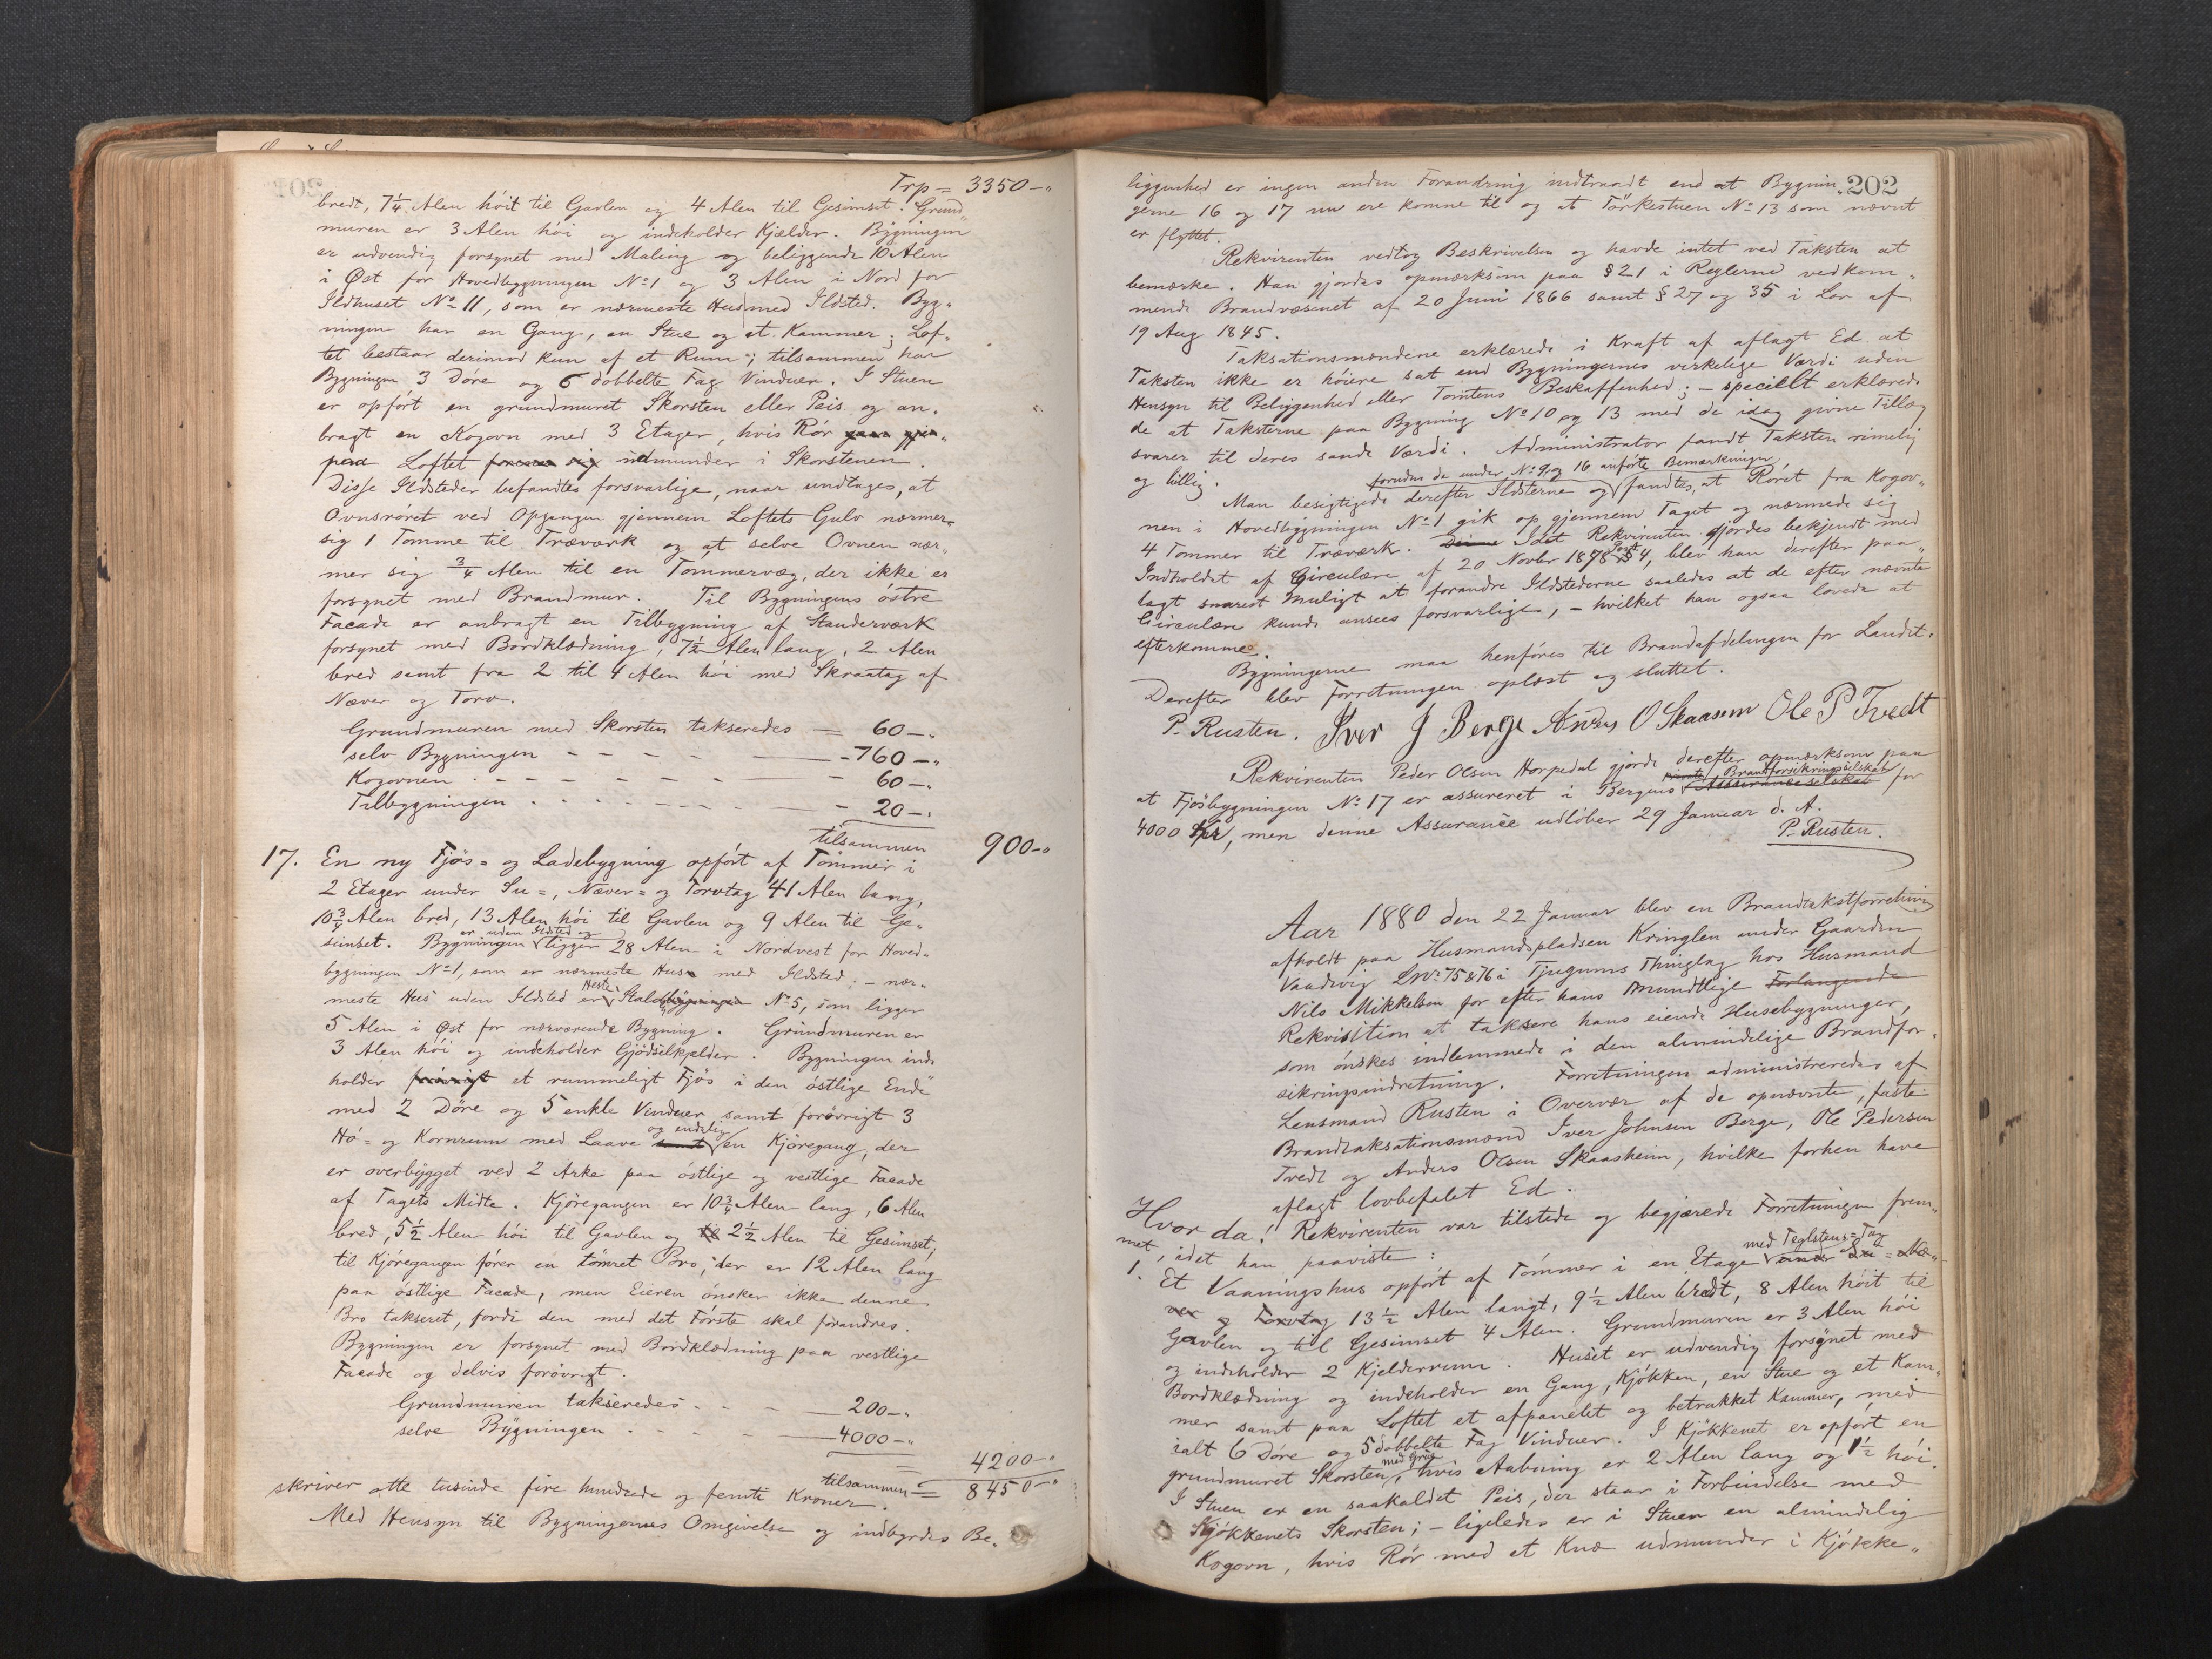 Trp = 3350-"
bredt, 7¼ Alen höit til Gavlen og 4 Alen til Gesimset. Grund„
muren er 3 Alen höi og indeholder Kjælder. Bygningen
er udvendig forsynet med Maling og beliggende 10 Alen
i Øst for Hovedbygningen No 1 og 3 Alen i Nord for
Ildhuset No 11, som er nærmeste Hus med Ildsted. Byg„
ningen har en Gang, en Stue og et Kammer; Lof„
tet bestaar derimod kun af et Rum; tilsammen har
Bygningen 3 Döre og 6 dobbelte Fag Vinduer. I Stuen
er opfört en grundmuret Skorsten eller Peis og an„
bragt en Kogovn med 3 Etager, hvis Rör gaar gjen„
paa Loftet udmunder i Skorstenen.
Disse Ildsteder befandtes forsvarlige, naar undtages, at
Ovnsröret ved Opgangen gjennem Loftets Gulv nærmer„
sig 1 Tomme til Træværk og at selve Ovnen nær„
mer sig ¾ Alen til en Tømmervæg, der ikke er
forsynet med Brandmur. Til Bygningens östre
Facade er anbragt en Tilbygning af Stænderværk
forsynet med Bordklædning, 7½ Alen lang, 2 Alen
bred samt fra 2 til 4 Alen höi med Skraatag af
Næver og Torv.
Grundmuren med Skorsten takseredes = 60-"
selv Bygningen - - - - 760-"
Kogovnen - - - - - - 60-"
Tilbygningen - - - - - - 20-"
tilsammen 900-"
17. En ny Fjös= og Ladebygning opfört af Tömmer i
2 Etager under Su=, Næver= og Torvtag 41 Alen lang,
10¾ Alen bred, 13 Alen höi til Gavlen og 9 Alen til Ge„
er uden Ildsted og
simset. Bygningen ligger 28 Alen i Nordvest for Hoved„
bygningen No 1, som er nærmeste Hus med Ildsted; - nær„
Heste
meste Hus uden Ildsted er Staldbygningen No 5, som ligger
5 Alen i Øst for nærværende Bygning. Grundmuren er
3 Alen höi og indeholder Gjödselkjælder. Bygningen inde„
holder forövrigt et rummeligt Fjös i den östlige Ende
med 2 Döre og 5 enkle Vinduer samt forövrigt 3
og endelig
Hö= og Kornrum med Laave samt en Kjöregang, der
er overbygget ved 2 Arke paa östlige og vestlige Facade
af Tagets Midte. Kjöregangen er 10¾ Alen lang, 6 Alen
bred, 5½ Alen höi til Gavlen og til 2½ Alen til Gesimset;
til Kjöregangen förer en tömret Bro, der er 12 Alen lang
paa östlige Facade, men Eieren önsker ikke denne
Bro takseret, fordi den med det Förste skal forandres.
Bygningen er forsynet med Bordklædning paa vestlige
Facade og delvis forövrigt.
Grundmuren takseredes - - - 200-"
selve Bygningen - - - - 4000-"
4200-"
tilsammen = 8450-"
skriver otte tusinde fire hundrede og femti Kroner.
Med Hensyn til Bygningernes Omgivelse og indbyrdes Be„
202
liggenhed er ingen anden Forandring indtraadt end at Bygnin„
gerne 16 og 17 nu ere komne til og at Törkestuen No 13 som nævnt
er flyttet.
Rekvirenten vedtog Beskrivelsen og havde intet ved Taksten at
bemærke. Han gjordes opmærksom paa § 21 i Reglerne vedkom„
mende Brandvæsenet af 20 Juni 1866 samt § 27 og 35 i Lov af
19 Aug 1845.
Taksationsmændene erklærede i Kraft af aflagt Ed at
Taksten ikke er höiere sat end Bygningernes virkelige Værdi uden
Hensyn til Beliggenhed eller Tomtens Beskaffenhed; - specielt erklære„
de at Taksterne paa Bygning No 10 og 13 med de idag givne Tillæg
svarer til deres sande Værdi. Administrator fandt Taksten rimelig
og billig.
foruden de under No 9 og 16 anförte Bemærkninger
Man besigtigede derefter Ildsterne og fandtes, at Röret fra Kogov„
nen i Hovedbygningen No 1 gik op gjennem Taget og nærmede sig
4 Tommer til Træværk. Idet Rekvirenten gjordes bekjendt med
Post
Indholdet af Circulære af 20 Novbr 1878 § 4, blev han derefter paa„
lagt snarest muligt at forandre Ildstederne saaledes at de efter nævnte
Circulære kunde ansees forsvarlige, - hvilket han ogsaa lovede at
efterkomme.
Bygningerne maa henföres til Brandafdelingen for Landet.
Derefter blev Forretningen oplæst og sluttet.
P. Rusten. Iver J Berge Anders O Skaasem Ole P Tvedt
Rekvirenten Peder Olsen Horpedal gjorde derefter opmærksom paa
private Brandforsikringsselskab
at Fjösbygningen No 17 er assureret i Bergens Assuranceselskab for
4000 Kr, men denne Assurance udlöber 29 Januar d. A.
P. Rusten.
Aar 1880 den 22 Januar blev en Brandtakstforretning
afholdt paa Husmandspladsen Kringlen under Gaarden
Vandvig LNo 75 & 76 i Tjugums Thinglag hos Husmand
Nils Mikkelsen for efter hans mundtlige Forlangende
Rekvisition at taksere hans eiende Husebygninger,
som önskes indlemmede i den almindelige Brandfor„
sikringsindretning. Forretningen administreredes af
Lensmand Rusten i Overvær af de opnævnte, faste
Brandtaksationsmænd Iver Johnsen Berge, Ole Pedersen
Tvedt og Anders Olsen Skaasheim, hvilke forhen have
aflagt lovbefalet Ed.
Hvor da! Rekvirenten var tilstede og begjærede Forretningen frem„
met, idet han paaviste:
med Teglstens=Tag
1. Et Vaaningshus opfört af Tömmer i en Etage under Su = Næ„
ver og Torvtag 13½ Alen langt, 9½ Alen bredt, 8 Alen höit til
Gavlen og til Gesimset 4 Alen. Grundmuren er 3 Alen höi
og indeholder 2 Kjelderrum. Huset er udvendig forsynet med
Bordklædning og indeholder en Gang, Kjökken, en Stue og et Kam„
mer samt paa Loftet et afpanelet og betrukket Kammer, med
ialt 6 Döre og 5 dobbelte Fag Vinduer. I Kjökkenet er opfört en
med Grue
grundmuret Skorsten, hvis Aabning er 2 Alen lang og 1½ höi.
I Stuen er en saakaldet Peis, der staar i Forbindelse med
Kjökkenets Skorsten; - ligeledes er i Stuen en almindelig
Kogovn, hvis Rör med et Knæ udmunder i Kjökke„